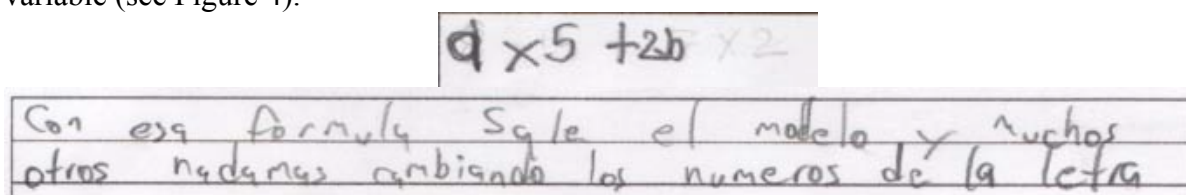 variable (see Figure 4).
a ×5 +2b ×2
Con esa formula Sale el modelo y muchos
otros nadamas cambiando los numeros de la letra